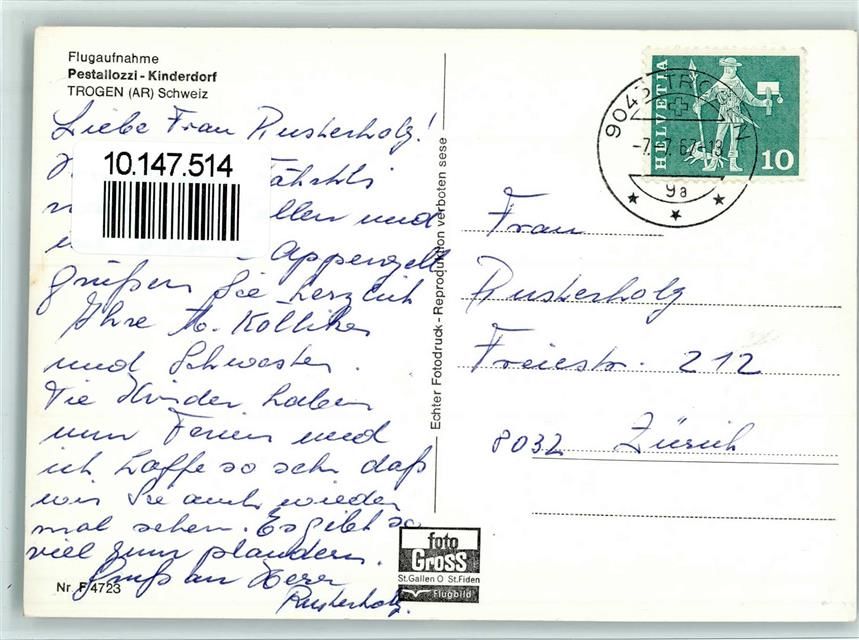 Flugaufnahme
Pestallozzi - Kinderdorf
TROGEN (AR) Schweiz
Liebe Frau Rusterholz!
10.147.514
Fährtli
und
Appenzell
grüßen Sie herzlich
Ihre M. Kolliker
und Schwester.
Die Kinder haben
nun Ferien und
ich hoffe so sehr daß
wir Sie auch wieder
mal sehen. Es gibt so
viel zum plaudern.
Gruß an Herr
Rusterholz.
Nr. F 4723
Echter Fotodruck - Reproduktion verboten sese
foto
GROSS
St.Gallen O St.Fiden
Flugbild
HELVETIA
10
9043 TROGEN
-7.-7 67-13
9a
Frau
Rusterholz
Freiestr. 212
8032 Zürich